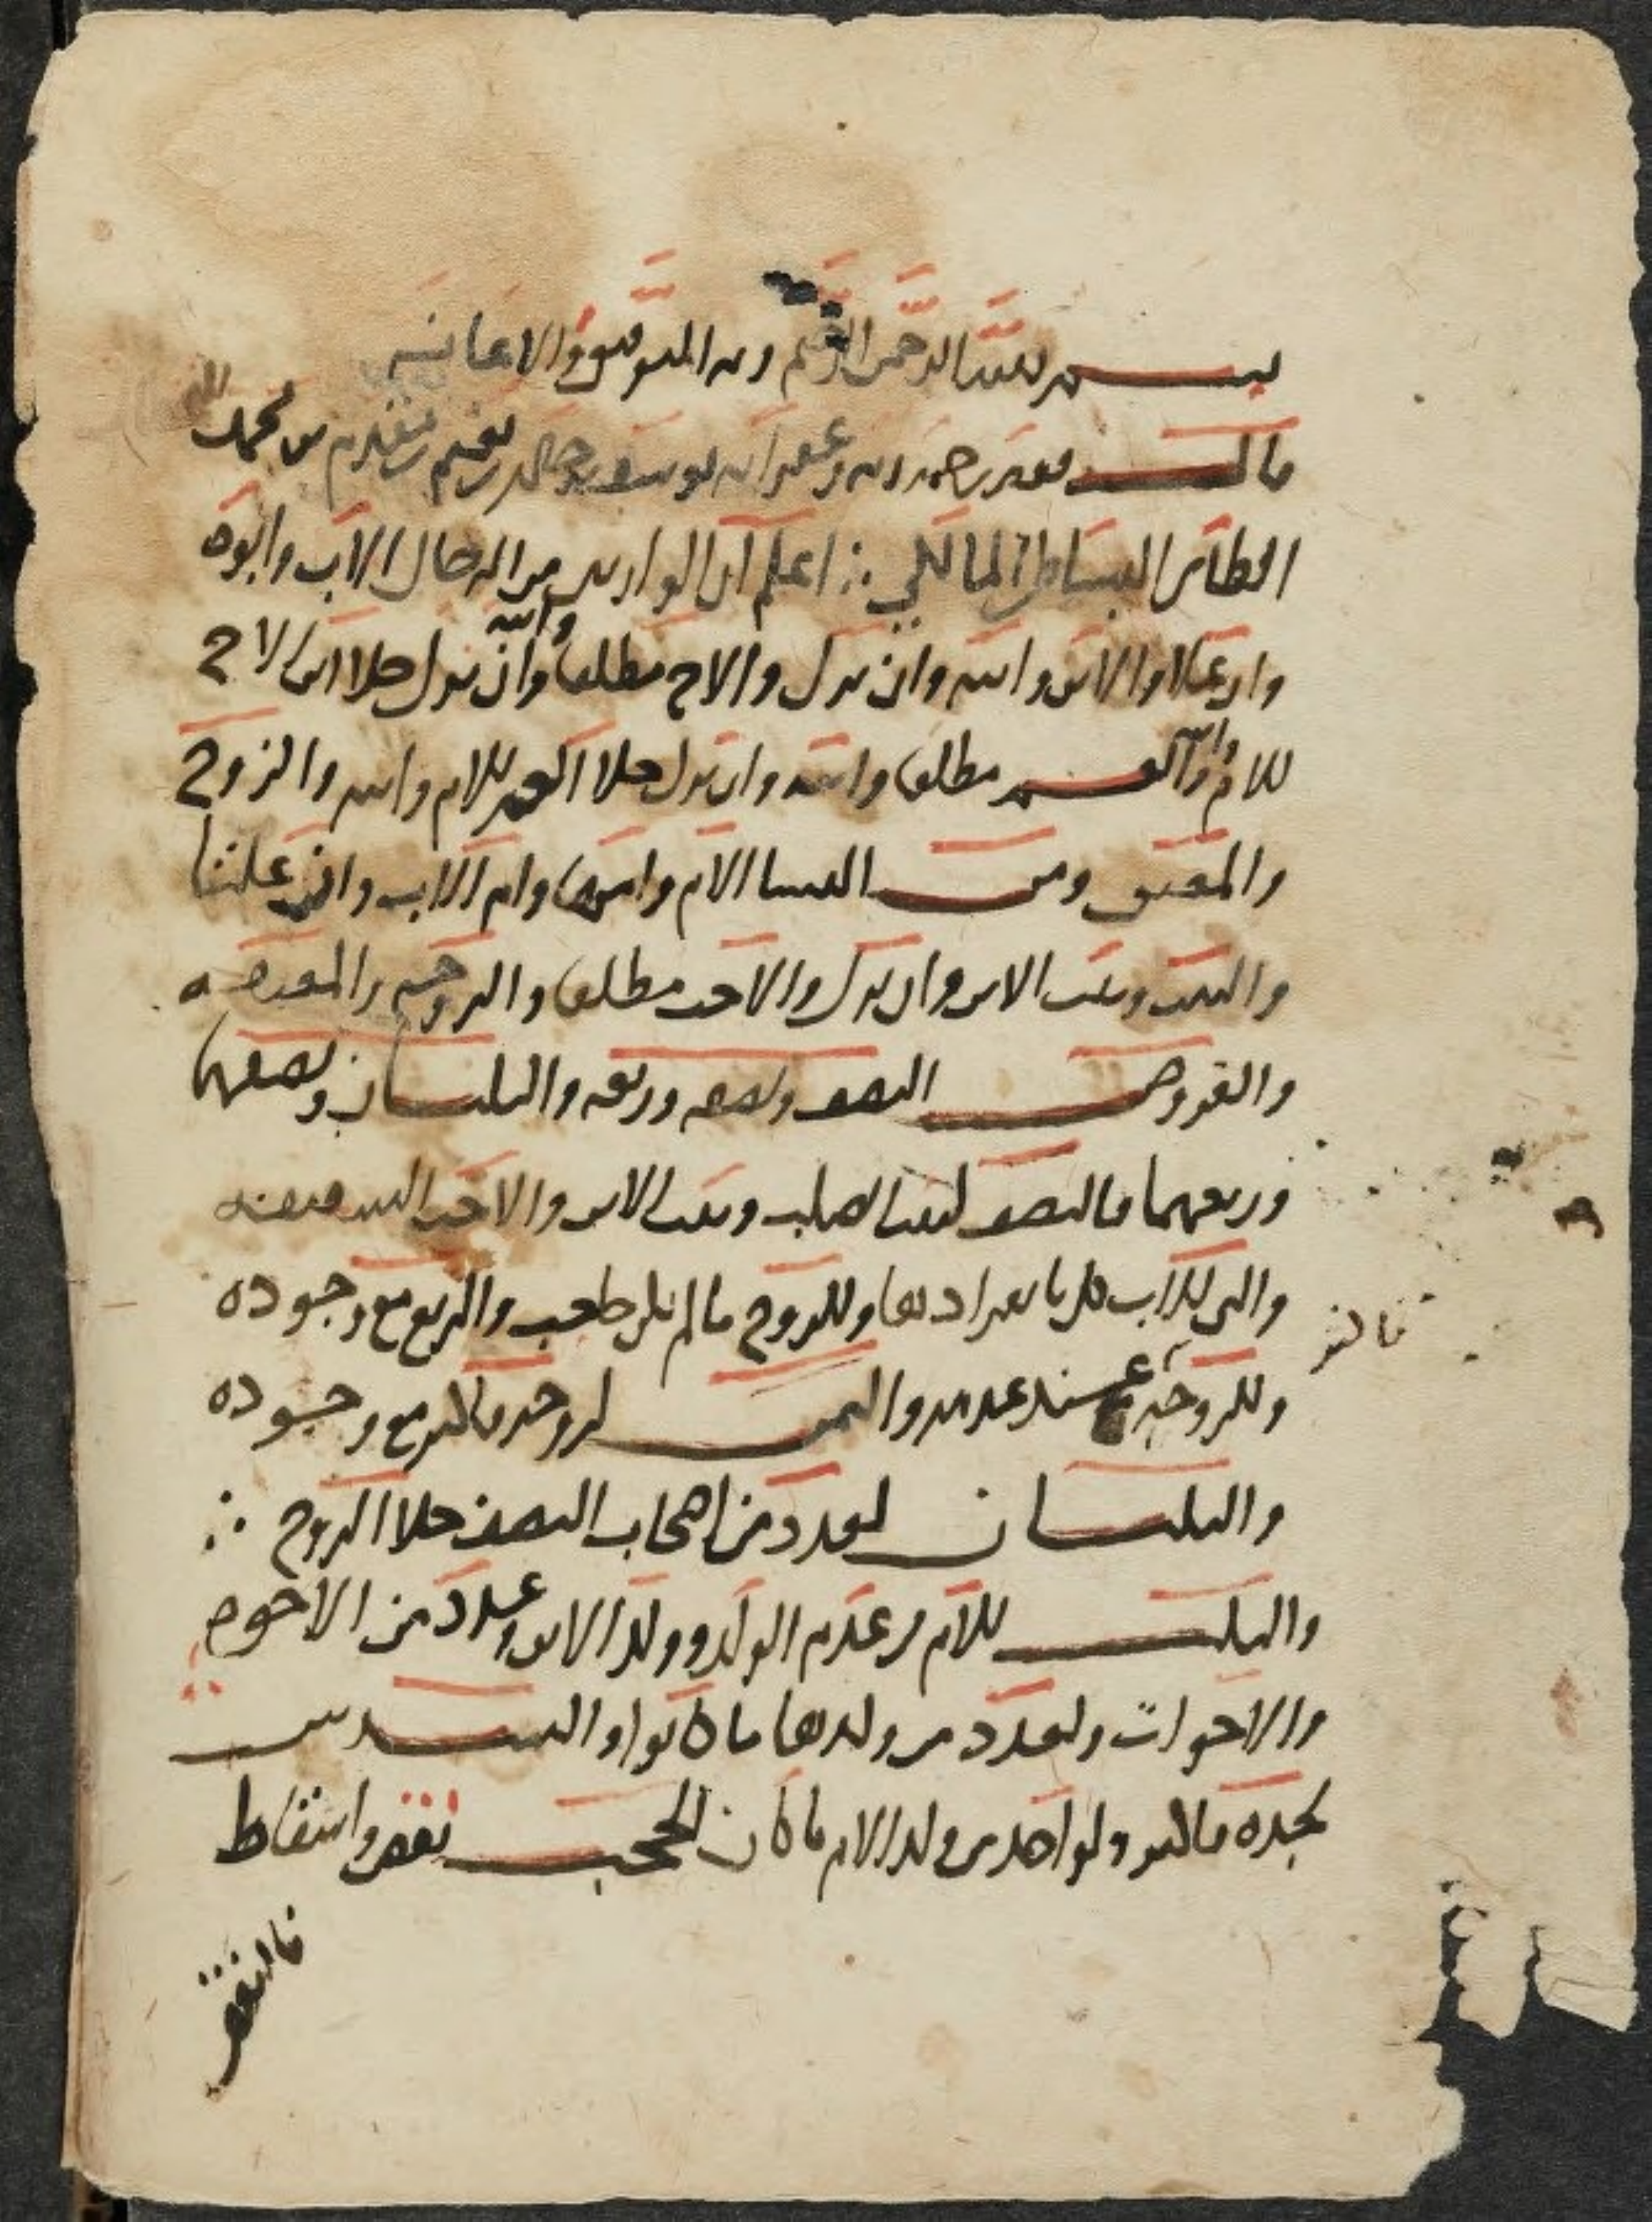 بسم الله الرحمن الرحيم وبه التوفيق والاعانه
قال فقير رحمة ربه وغفرانه يوسف بن خالد بن نعيم بن مقدم بن محمد
الطائي البساطي المالكي ∴ اعلم ان الوارث من الرجال الاب وابوه
وان علا والابن وابنه وان نزل والاخ مطلقا وابنه وان نزل خلا ابن الاخ
للام والعم مطلقا وابنه وان نزل خلا العم للام وابنه والزوج
والمعتق ومن النسا الام وامها وام الاب وان علتا
والبنت وبنت الابن وان نزل والاخت مطلقا والزوجه والمعتقه
والفروض النصف ونصفه وربعه والثلثان ونصفهما
وربعهما فالنصف لبنت الصلب وبنت الابن والاخت الشقيقه
والتي للاب كل بانفرادها وللزوج ما لم يكن حاجب والربع مع وجوده
وللزوجه عند عدمه والثمن لزوجه فاكثر مع وجوده
والثلثان لعدد من اصحاب النصف خلا الزوج ∴
والثلث للام مع عدم الولد وولد الابن وعدد من الاخوه
والاخوات ولعدد من ولدها ما كانوا والسدس
لجده فاكثر ولواحد من ولد الام ما كان الحجب نقص واسقاط
فالنقص